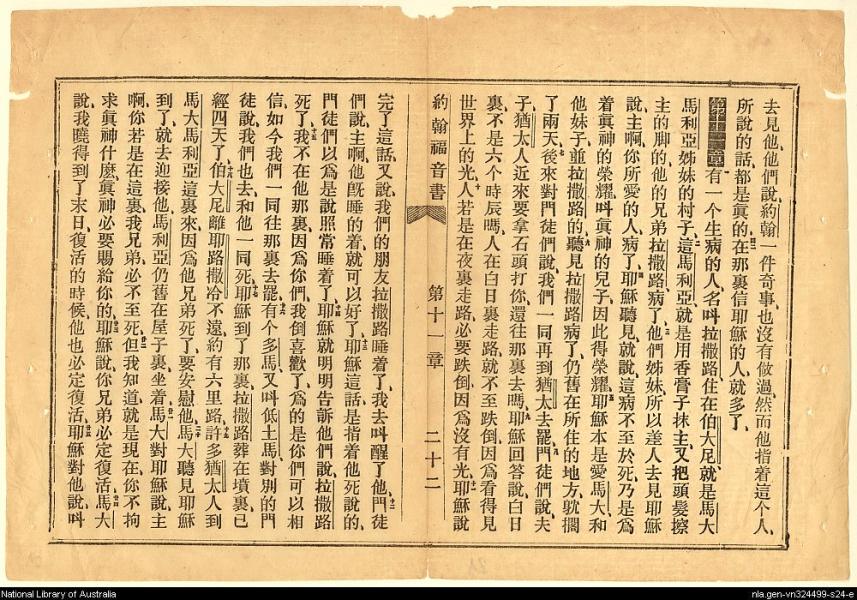 去見他他們說約翰一件奇事也沒有做過然而他指着這个人
所說的話都是眞的在那裏信耶穌的人就多了
第十一章有一个生病的人名呌拉撒路住在伯大尼就是馬大
馬利亞姊妹的村子這馬利亞就是用香膏子抹主又把頭髮擦
主的脚的他的兄弟拉撒路病了他們姊妹所以差人去見耶穌
說主啊你所愛的人病了耶穌聽見就說這病不至於死乃是爲
着眞神的榮耀呌眞神的兒子因此得榮耀耶穌本是愛馬大和
他妹子並拉撒路的聽見拉撒路病了仍舊在所住的地方躭擱
了兩天後來對門徒們說我們一同再到猶太去罷門徒們說夫
子猶太人近來要拿石頭打你還往那裏去嗎耶穌回答說白日
裏不是六个時辰嗎人在白日裏走路就不至跌倒因爲看得見
世界上的光人若是在夜裏走路必要跌倒因爲沒有光耶穌說
約翰福音書 第十一章 二十二
完了這話又說我們的朋友拉撒路睡着了我去呌醒了他門徒
們說主啊他旣睡的着就可以好了耶穌這話是指着他死說的
門徒們以爲是說照常睡着了耶穌就明明告訴他們說拉撒路
死了我不在他那裏因爲你們我倒喜歡了爲的是你們可以相
信如今我們一同往那裏去罷有个多馬又呌低土馬對別的門
徒說我們也去和他一同死耶穌到了那裏拉撒路葬在墳裏已
經四天了伯大尼離耶路撒冷不遠約有六里路許多猶太人到
馬大馬利亞這裏來因爲他兄弟死了要安慰他馬大聽見耶穌
到了就去迎接他馬利亞仍舊在屋子裏坐着馬大對耶穌說主
啊你若是在這裏我兄弟必不至死但我知道就是現在你不拘
求眞神什麼眞神必要賜給你的耶穌說你兄弟必定復活馬大
說我曉得到了末日復活的時候他也必定復活耶穌對他說呌
National Library of Australia
nla.gen-vn324499-s24-e